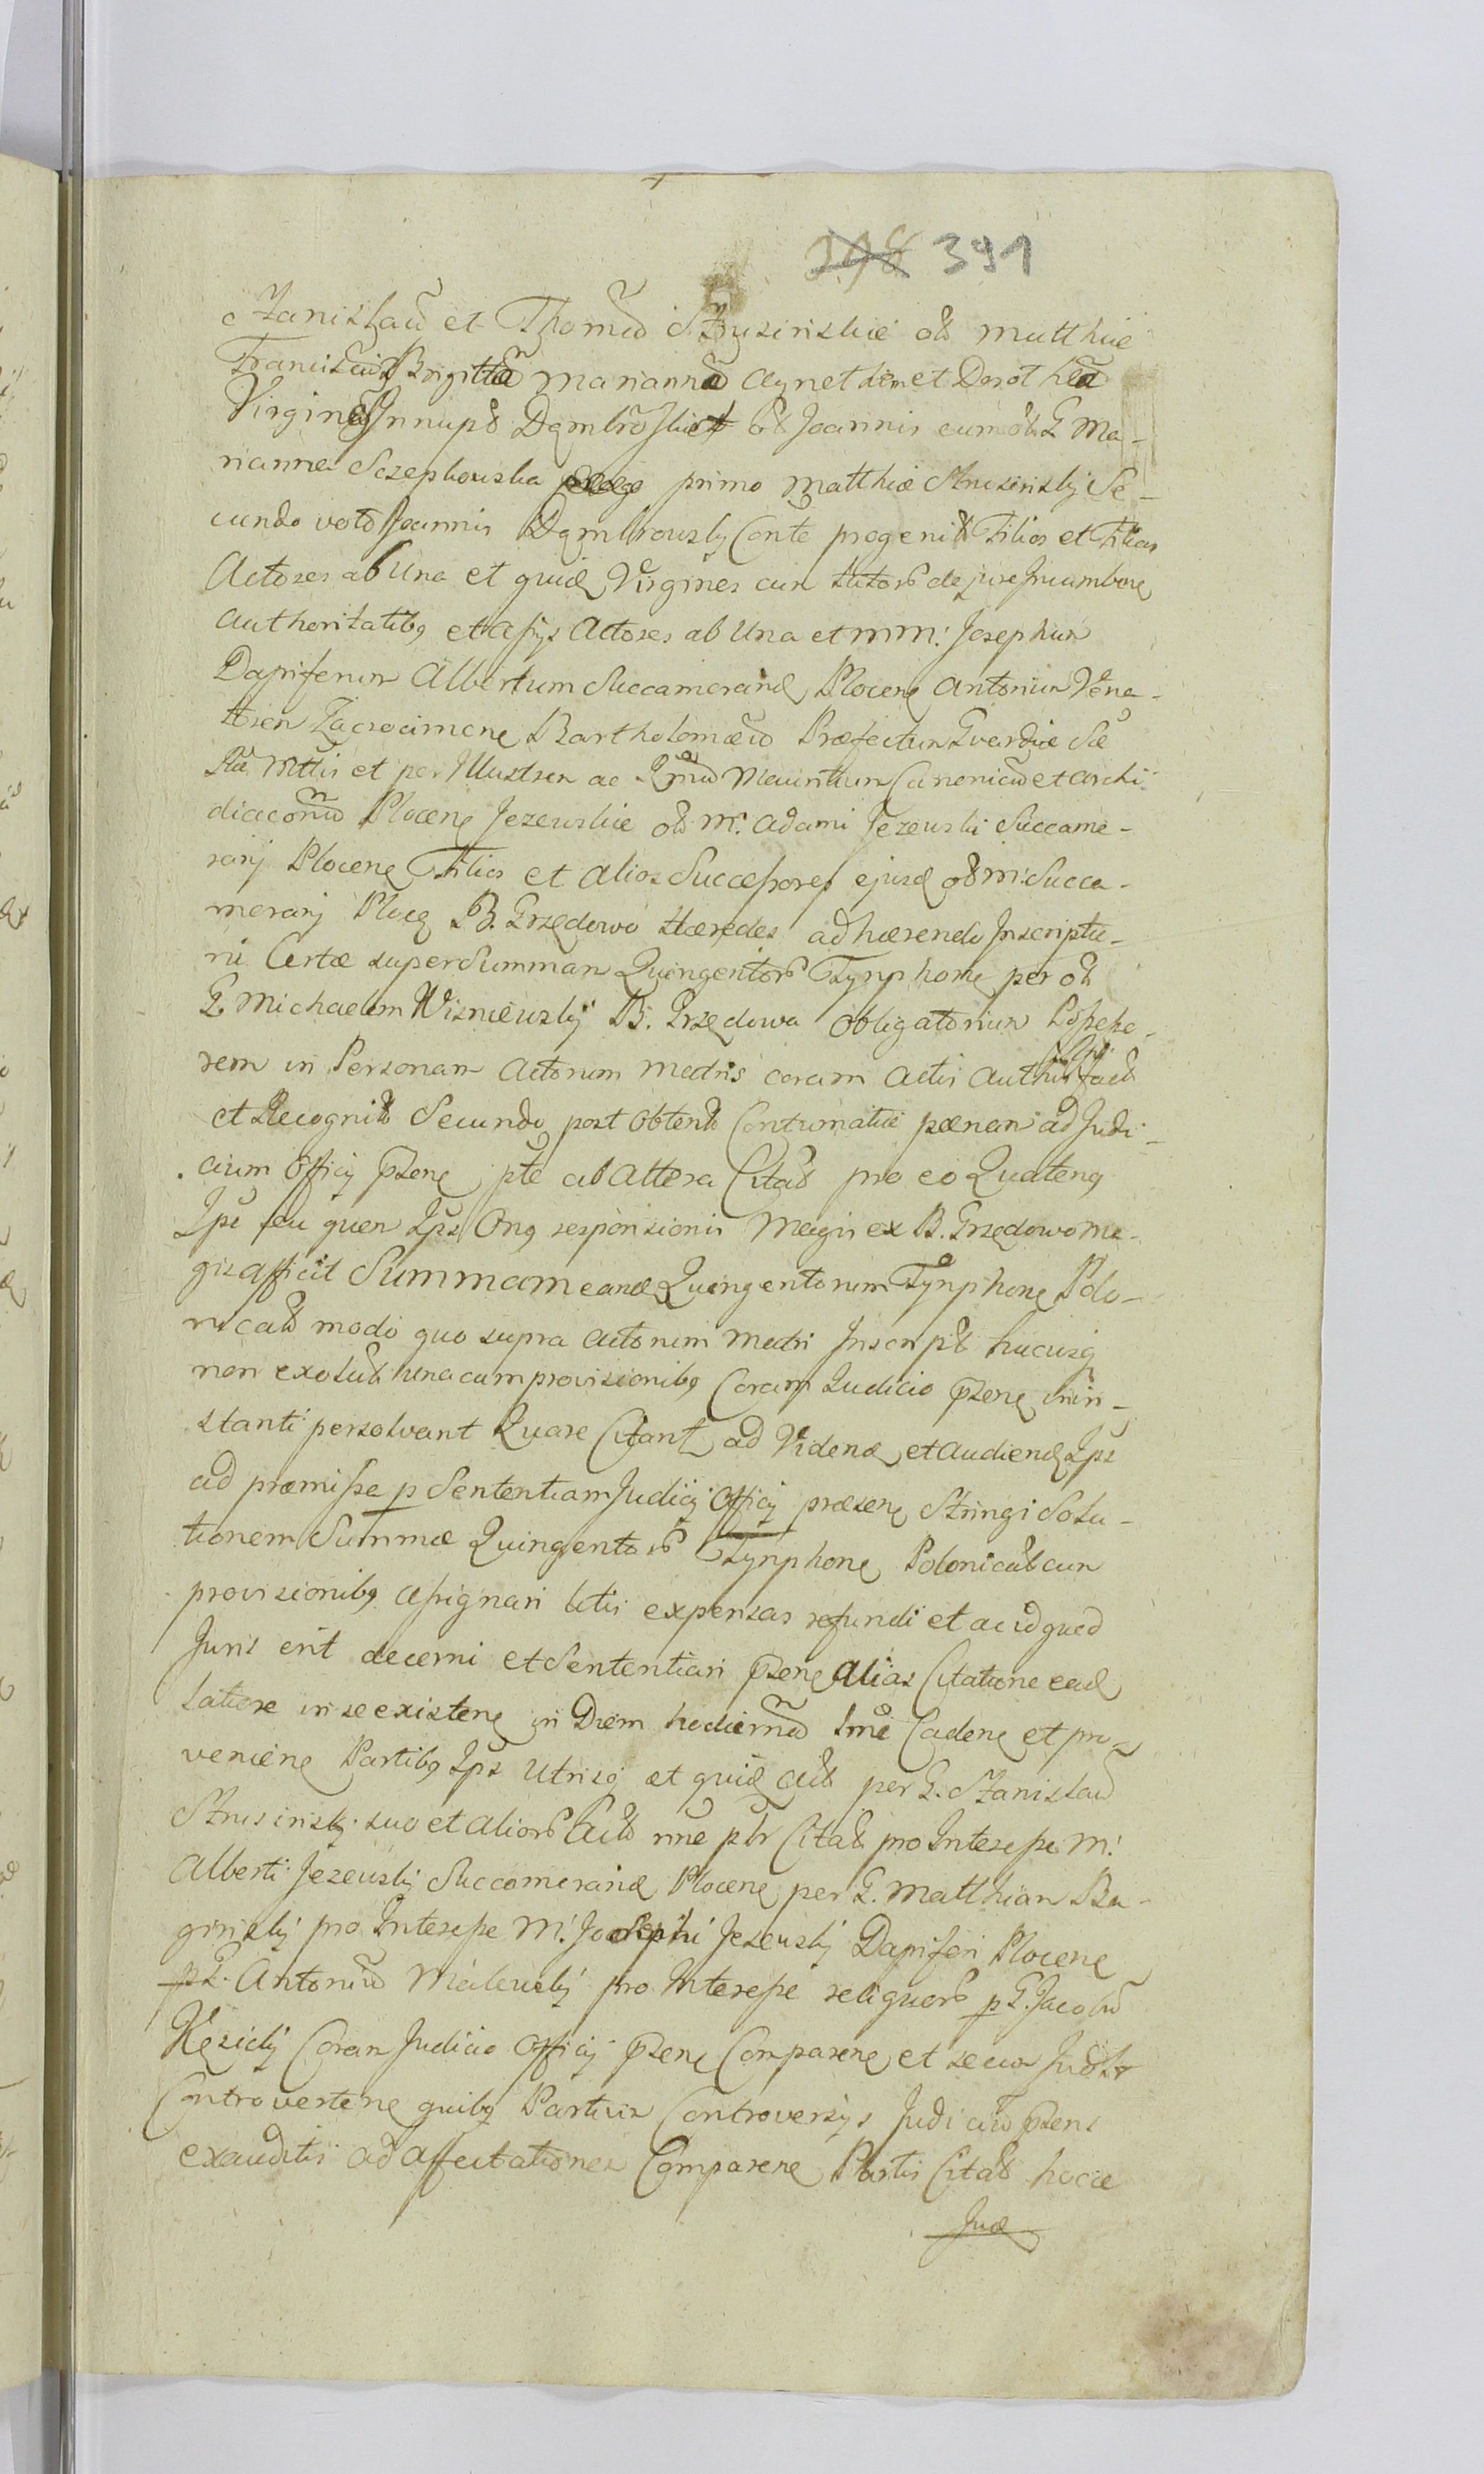 218 391
Stanislaũ et Thomã Strusinskie ol Matthiæ
Franciscũ Brigittã Mariannã Agnethem et Dorotheã
Virgines Innupt Dąmbrõskie ol Joannis cum ol G Ma-
rianna Sczepkowska primo Matthiæ Strusinskij Se-
cundo voto Joannis Dąmbrowskij Conte progenit Filios et Filias
Actores ab Una et quid Virgines cum tutorũ de jure Incumben
authoritatibq et assys Actores ab Una et mm: Josephum
Dapiferum Albertum Succamerarid Plocen Antonium Vena-
torem Zacrocimen Bartholomæũ Præfectum Gvardiæ Sæ
Ræ Mttis et per Illustrem ac Rmũ Mauritium Canonicũ et Archi-
diaconũ Plocen Jezewskie ol M. Adami Jezewski Succame-
rarij Plocen Filios et alios Successores ejusd ol M. Succa-
merarij Ploc B. Grzędowo Hæredes adhærendo Inscriptio-
ni Certæ super Summam Quingentorũ Tynphon per ol
G. Michaelem Wisniewskij B. Grzędowa Obligatoriam
rem in Personam Actorum Matris coram Actis Authen fact
et Recognit Secundo post obtent Contumatiæ pænam ad Judi-
cium Officij Przen pte ab Altera Citat pro eo Quatenq
Ipsi seu quem Ipsz Onq responsionis Magis ex B. Grzędowo ma-
gis afficit Summam eand Quingentorum Tynphon Polo-
nicał modo quo supra Actorum Matri Inscript hucusq
non exolut una cum provisionibq Coram Judicio Przen in in-
stanti persolvant Quare Citant ad Videnđ et Audienđ Ipsz
ad præmissa p Sententiam Judicij Officij præsen Stringi Solu-
tionem Summæ Quingentorũ Tynphon Polonical cum
provisionibq assignari litis expensas refundi et ac id quod
Juris erit decerni et Sententiari Przen Alias Citatione ead
latiore in se existen in Diem hodiernũ Tme Caden et pro-
venien Partibq Ipsz Utrisq et quid Act per G. Stanislaũ
Strusinskij suo et aliorũ Act nne ptr Citat pro Interesse M:
Alberti Jezewskij Succamerarid Plocen per G. Matthiam Ba-
ginskij pro Interesse M. Josephi Jezewskij Dapiferi Plocen
p G. Antoniũ Milewskij pro Interesse reliquorũ p G. Jacobũ
Kęsickij Coram Judicio Officij Przen Comparen et secum Judtr
Controverten quibq Partium Controversys Judiciũ Przens
exauditis ad affectationem Comparen Partis Citat hocce
Jud